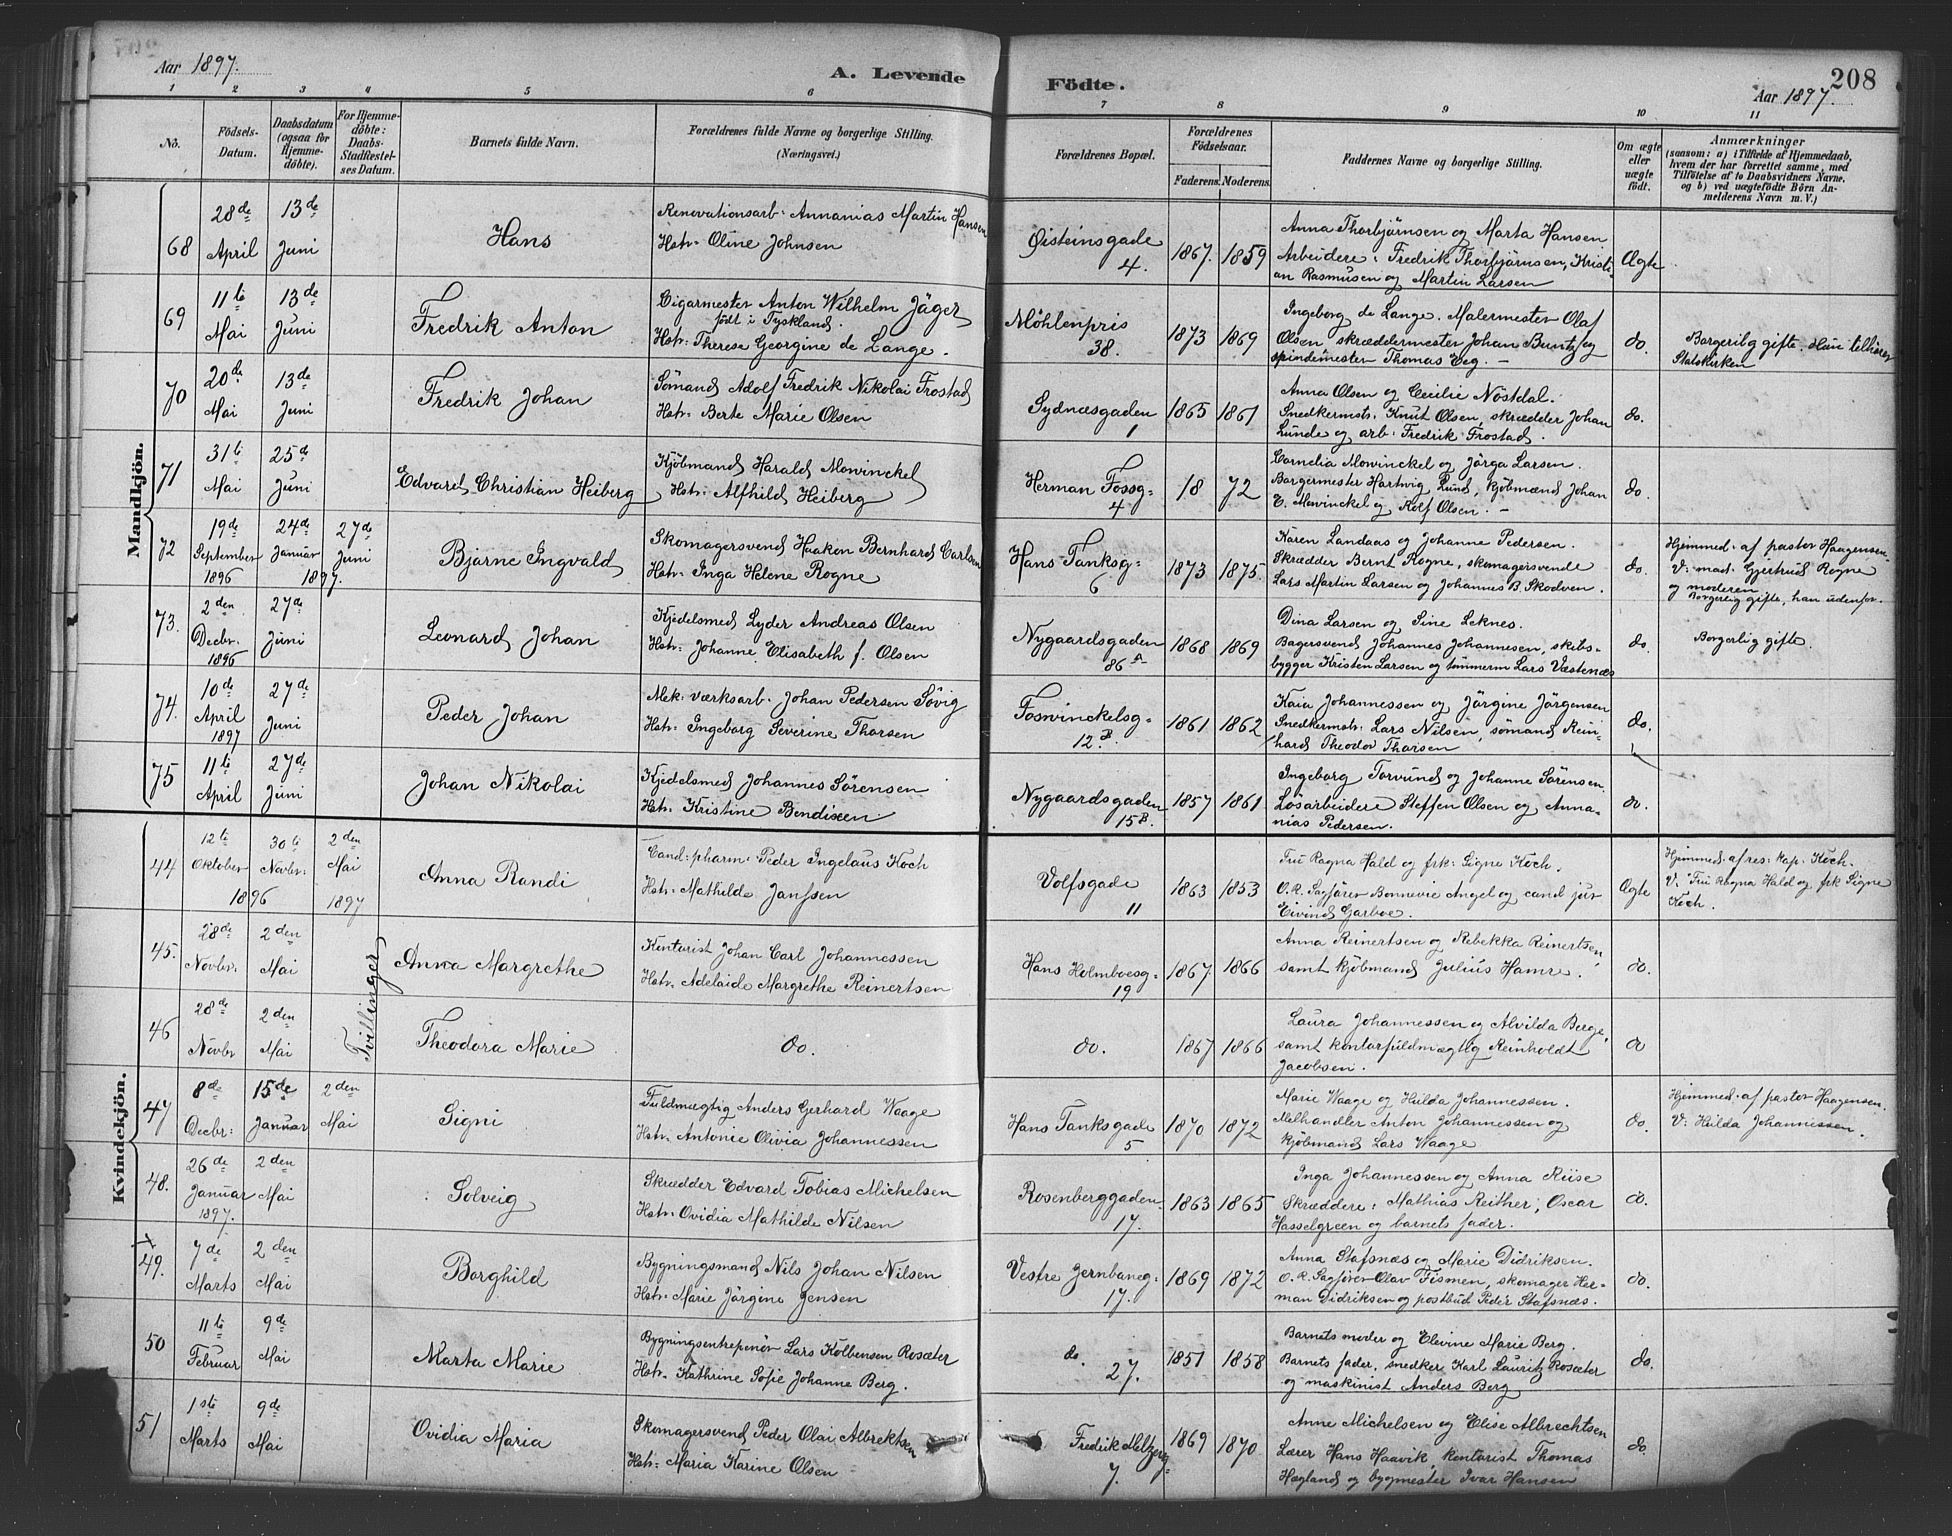 Aar 1897.
A. Levende
Födte.
208
Aar 1897.
1 2 3 4 5 6 7 8 9 10 11
No.
Födsels-
Datum.
Daabsdatum
(ogsaa for
Hjemme-
döbte).
For Hjemme-
döbte:
Daabs-
Stadfæstel-
ses Datum.
Barnets fulde Navn.
Forældrenes fulde Navne og borgerlige Stilling.
(Næringsvei.)
Forældrenes Bopæl.
Forældrenes
Födselsaar.
Faderens. Moderens.
Faddernes Navne og borgerlige Stilling.
Om ægte
eller
uægte
født.
Anmærkninger
(saasom: a) i Tilfælde af Hjemmedaab,
hvem der har forrettet samme, med
Tilföielse af to Daabsvidners Navne,
og b) ved uægtefödte Börn An-
melderens Navn m. V.)
Mandkjön.
68
28de April
13de Juni
Hans
Renovationsarb: Annanias Martin Hansen
Hstr: Oline Johnsen
Øisteinsgade
4.
1867. 1859
Anna Thorbjörnsen og Marta Hansen
Arbeidere: Fredrik Thorbjörnsen, Kristi-
an Rasmusen og Martin Larsen
Ægte
69
11te Mai
13de Juni
Fredrik Anton
Cigarmester Anton Wilhelm Jäger
födt i Tyskland.
Hstr: Therese Georgine de Lange.
Möhlenpris
38.
1873 1869
Ingeborg de Lange. Malermester Olaf
Olsen skræddermester Johan Buntz og
spindemester Thomas Eeg. –
do.
Borgerlig gifte. Hun tilhører
Statskirken
70
20de Mai
13de Juni
Fredrik Johan
Sömand Adolf Fredrik Nikolai Frostad
Hstr: Berte Marie Olsen
Sydnæsgaden
1
1865 1861
Anna Olsen og Cecilie Nöstdal.
Snedkermstr. Knut Olsen, skrædder Johan
Lunde og arb: Fredrik Frostad.
do.
71
31te Mai
25de Juni
Edvard Christian Heiberg
Kjöbmand Harald Mowinckel
Hstr: Alfhild Heiberg
Herman Fossg:
4
18 72
Cornelia Mowinckel og Jörga Larsen.
Borgermester Hartvig Lund, kjöbmænd Johan
E. Mowinckel og Rolf Olsen. –
do.
72
19de September 1896
24de Januar 1897.
27de Juni
Bjarne Ingvald
Skomagersvend Haakon Bernhard Carlsen
Hstr: Inga Helene Rogne
Hans Tanksg:
6
1873 1875.
Karen Landaas og Johanne Pedersen.
Skrædder Bernt Rogne, skomagersvende
Lars Martin Larsen og Johannes B. Skodven.
do.
Hjemmed. af pastor Haagensen
V: mad. Gjertrud Rogne
og moderen
Borgerlig gifte, han udenfor.
73.
2den Decbr. 1896
27de Juni
Leonard Johan
Kjedelsmed Lyder Andreas Olsen
Hstr: Johanne Elisabeth f. Olsen
Nygaardsgaden
86 A
1868 1869
Dina Larsen og Sine Leknes.
Bagersvend Johannes Johannesen, skibs-
bygger Kristen Larsen og tømmerm Lars Vestenæs
do.
Borgerlig gifte.
74.
10de April 1897
27de Juni
Peder Johan
Mek: værksarb. Johan Pedersen Sövig
Hstr: Ingeborg Severine Thorsen
Foswinckelsg:
12. B
1861 1862
Kaia Johannessen og Jörgine Jörgensen
Snedkermstr: Lars Nilsen, sömand Rein-
hard Theodor Thorsen
do.
75
11te April
27de Juni
Johan Nikolai
Kjedelsmed Johannes Sörensen
Hstr: Kristine Bendixen.
Nygaardsgaden
15 B.
1857 1861
Ingeborg Torvund og Johanne Sörensen.
Lösarbeidere Steffen Olsen og Anna-
nias Pedersen.
do.
Kvindekjön.
44
12te Oktober 1896
30te Novbr:
2den Mai 1897
Anna Randi
Cand: pharm: Peder Ingelaus Koch
Hstr: Mathilde Janssen
Volfsgade
11
1863 1853
Fru Ragna Hald og frk: Signe Koch.
O.R. Sagfører Bonnevie Angel og cand jur
Eivind Garboe.
Ægte
Hjemmed. af res: kap. Koch.
V. Fru Ragna Hald og frk Signe
Koch.
45.
28de Novbr:
2den Mai
Tvillinger
Anna Margrethe
Kontorist Johan Carl Johannessen
Hstr: Adelaide Margrethe Reinertsen
Hans Holmboesg:
19
1867. 1866
Anna Reinertsen og Rebekka Reinertsen,
samt kjöbmand Julius Hamre.
do.
46
28de Novbr
2den Mai
Theodora Marie
do.
do.
1867 1866
Laura Johannessen og Alvilda Berge,
samt kontorfuldmægtig Reinholdt
Jacobsen.
do
47
8de Decbr:
15de Januar
2den Mai
Signi
Fuldmægtig Anders Gerhard Waage
Hstr: Antonie Olivia Johannessen
Hans Tanksgade
5
1870 1872
Marie Waage og Hilda Johannessen.
Melhandler Anton Johannessen og
kjöbmand Lars Waage
do.
Hjemmed. af pastor Haagensen.
V: Hilda Johannessen.
48.
26de Januar 1897.
2den Mai
Solveig
Skrædder Edvard Tobias Michelsen
Hstr: Ovidia Mathilde Nilsen
Rosenberggaden
17.
1863 1865
Inga Johannessen og Anna Riise
Skræddere: Mathias Reither, Oscar
Hasselgreen og barnets fader.
do.
x
49.
7de Marts
2den Mai
Borghild
Bygningsmand Nils Johan Nilsen
Hstr: Marie Jörgine Jensen
Vestre Jernbaneg:
17.
1869 1872
Anna Stafsnæs og Marie Didriksen.
O.R. Sagfører Olav Fismen, skomager Her-
man Didriksen og postbud Peder Stafsnæs.
do.
50
11te Februar
9de Mai
Marta Marie
Bygningsentrepenör Lars Kolbensen Rosæter
Hstr: Kathrine Sofie Johanne Berg.
do.
27.
1851 1858
Barnets moder og Elevine Marie Berg.
Barnets fader, snedker Karl Lauritz Rosæter
og maskinist Anders Berg
do.
51
1ste Marts
9de Mai
Ovidia Maria
Skomagersvend Peder Olai Albrektsen
Hstr: Maria Karine Olsen
Fredrik Meltzersg:
7.
1869 1870
Anne Michelsen og Elise Albrechtsen
Lærer Hans Haavik, kontorist Thomas
Hagland og bygmester Ivar Hansen
do.